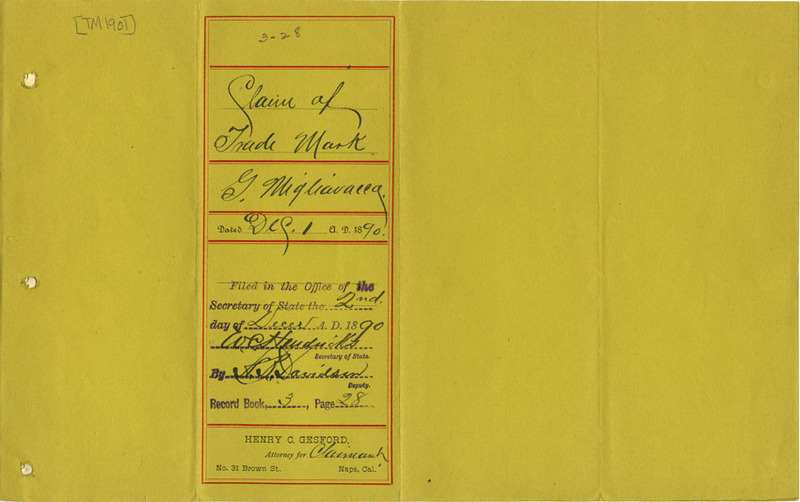 [TM 1901]
3-28
Claim of
Trade Mark
G. Migliavacca.
Dated Dec. 1 A. D. 1890.
Filed in the Office of the
Secretary of State the 2nd.
day of Decer A. D. 1890
W.C. Hendricks
Secretary of State.
By Davidson
Deputy.
Record Book, 3, Page 28
HENRY C. GESFORD,
Attorney for Claimant
No. 31 Brown St. Napa, Cal.